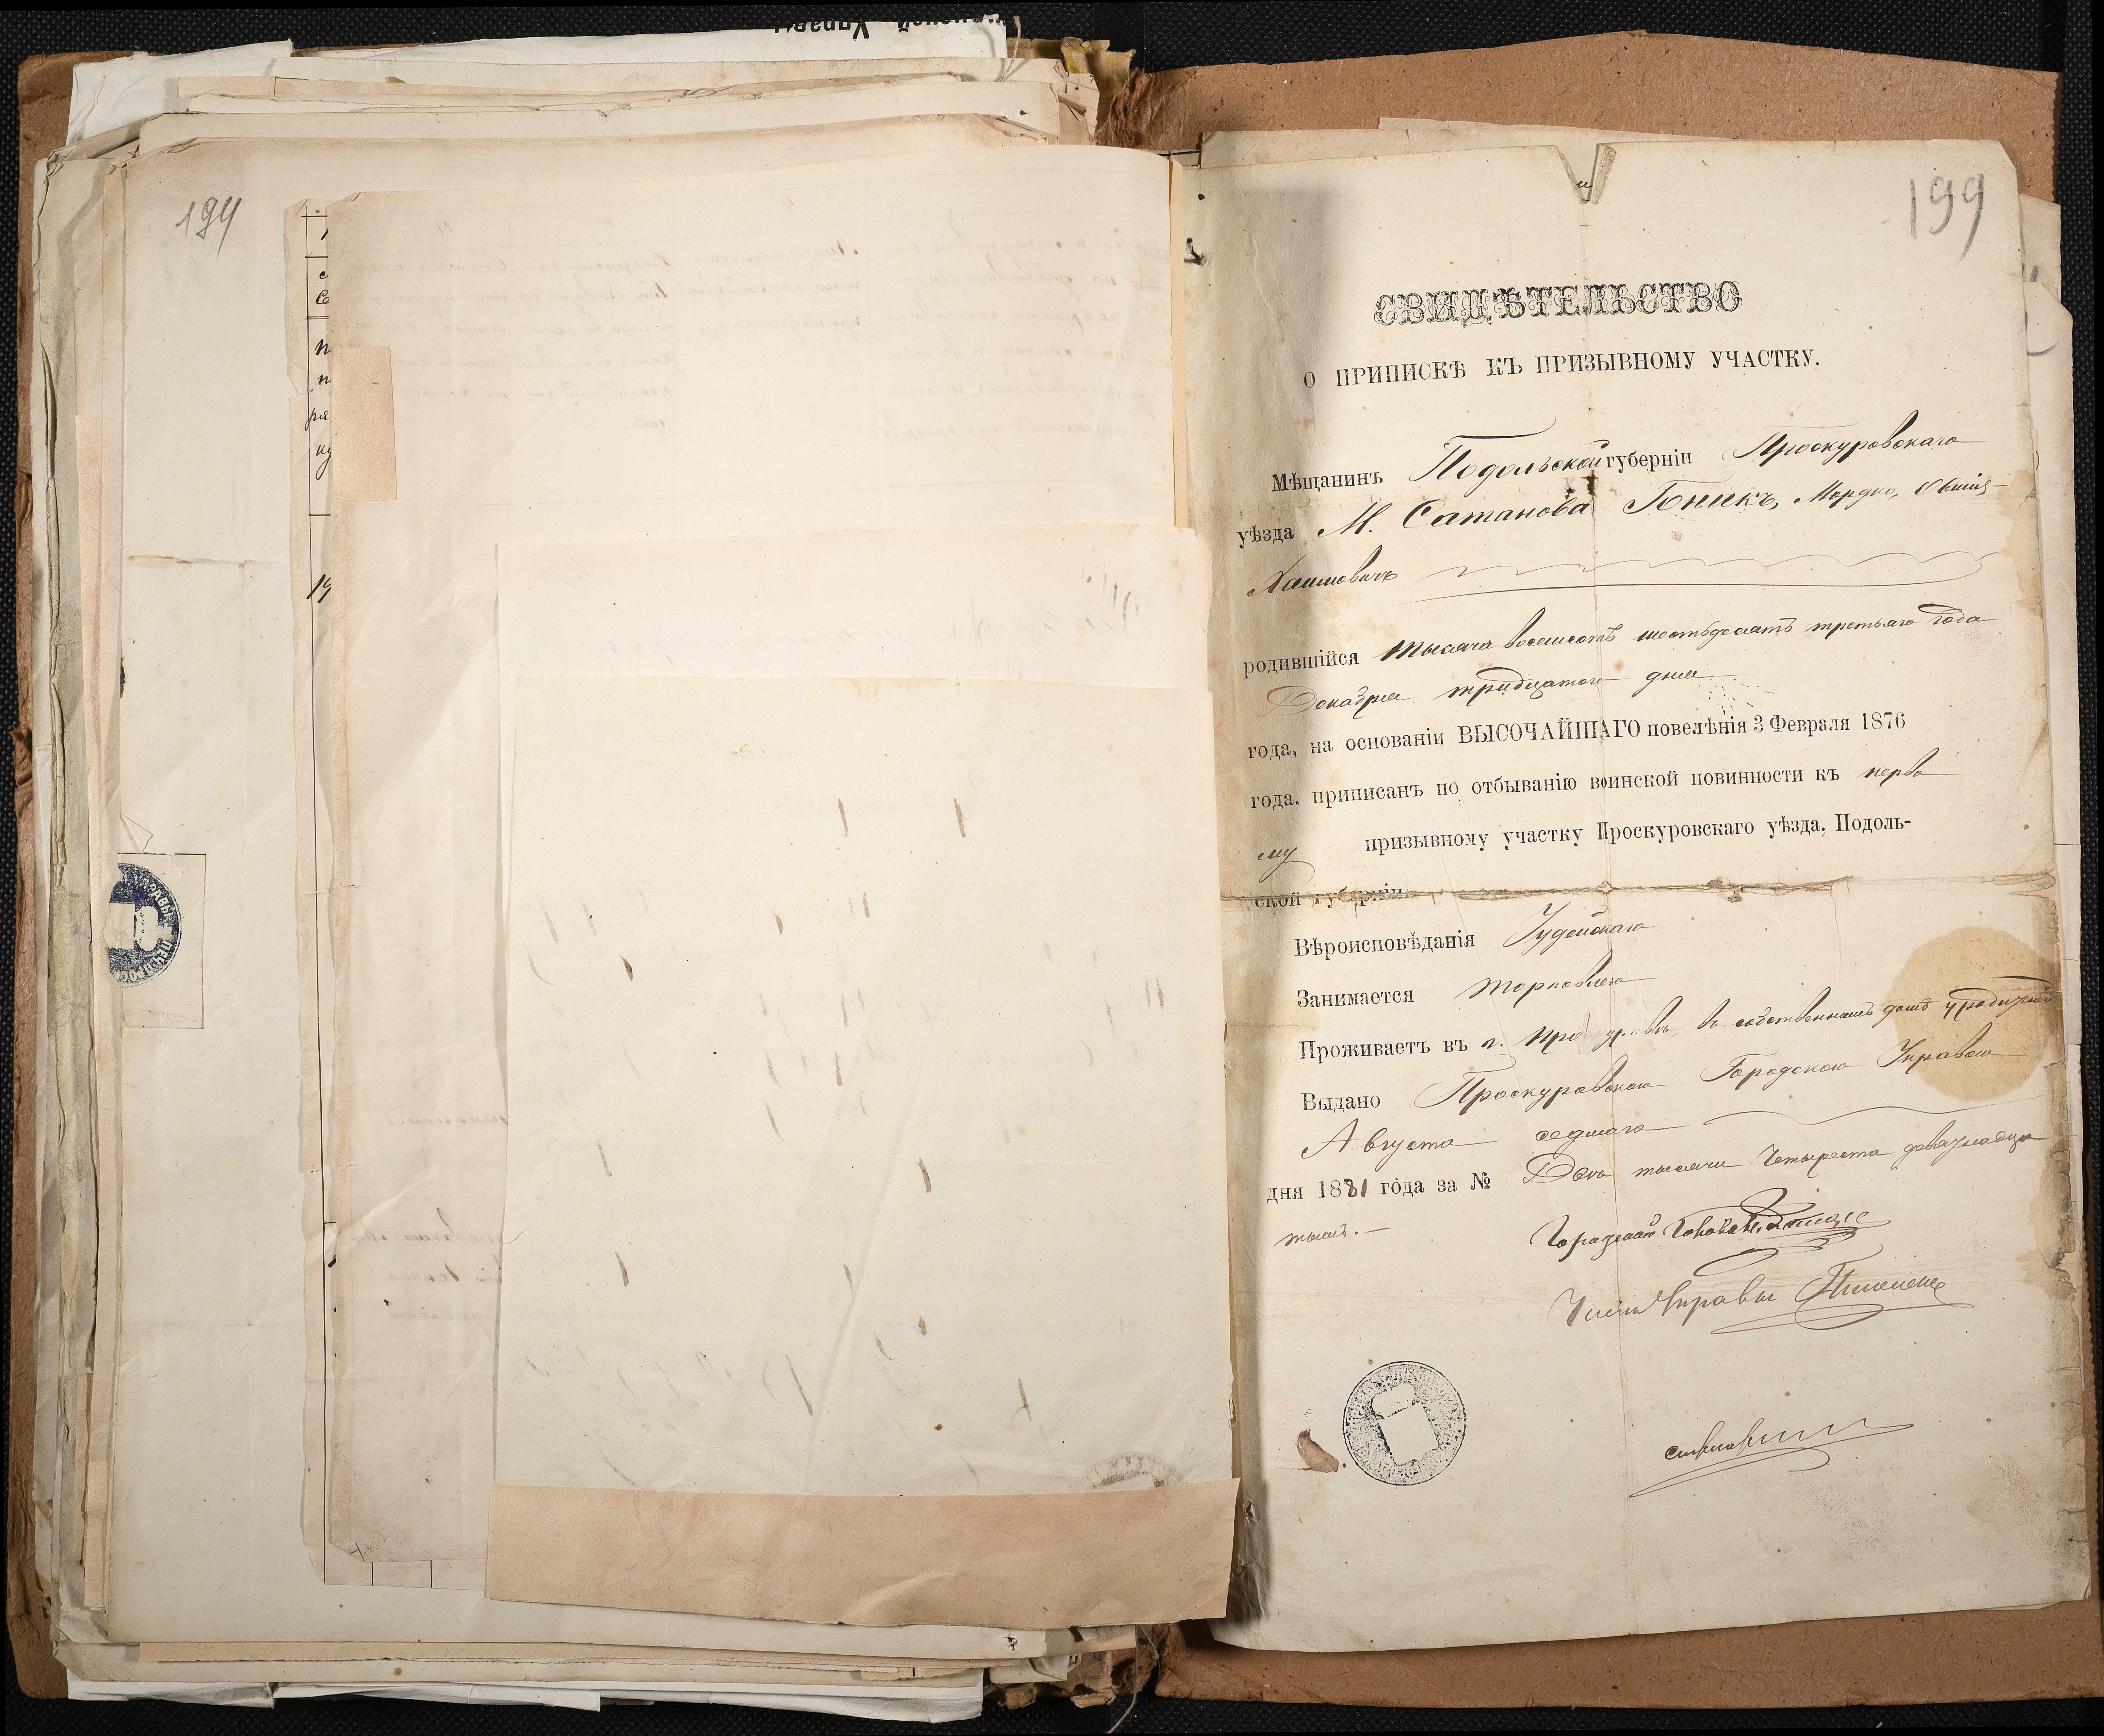 194
199
СВИДѢТЕЛЬСТВО
О ПРИПИСКѢ КЪ ПРИЗЫВНОМУ УЧАСТКУ.
Мѣщанинъ Подольской губерніи Проскуровскаго
уѣзда М. Сатанова Бникъ, Мордко, Овшія-
Хаимовичъ
родившійся тысяча восемсотъ шестьдесятъ третьяго года
Декабря тридцатого дня
года, на основаніи ВЫСОЧАЙШАГО повелѣнія 3 Февраля 1876
года, приписанъ по отбыванію воинской повинности къ перво
му призывному участку Проскуровскаго уѣзда, Подоль-
ской губерніи.
Вѣроисповѣданія Іудейскаго
Занимается торговлею
Проживаетъ въ г. Проскуровѣ, въ собственномъ домѣ у родителей
Выдано Проскуровскою Городскою Управою
Августа седмаго
дня 1881 года за № Двѣ тысячи четыреста девятнадца
тымъ.
Городской Голова
Членъ Управы